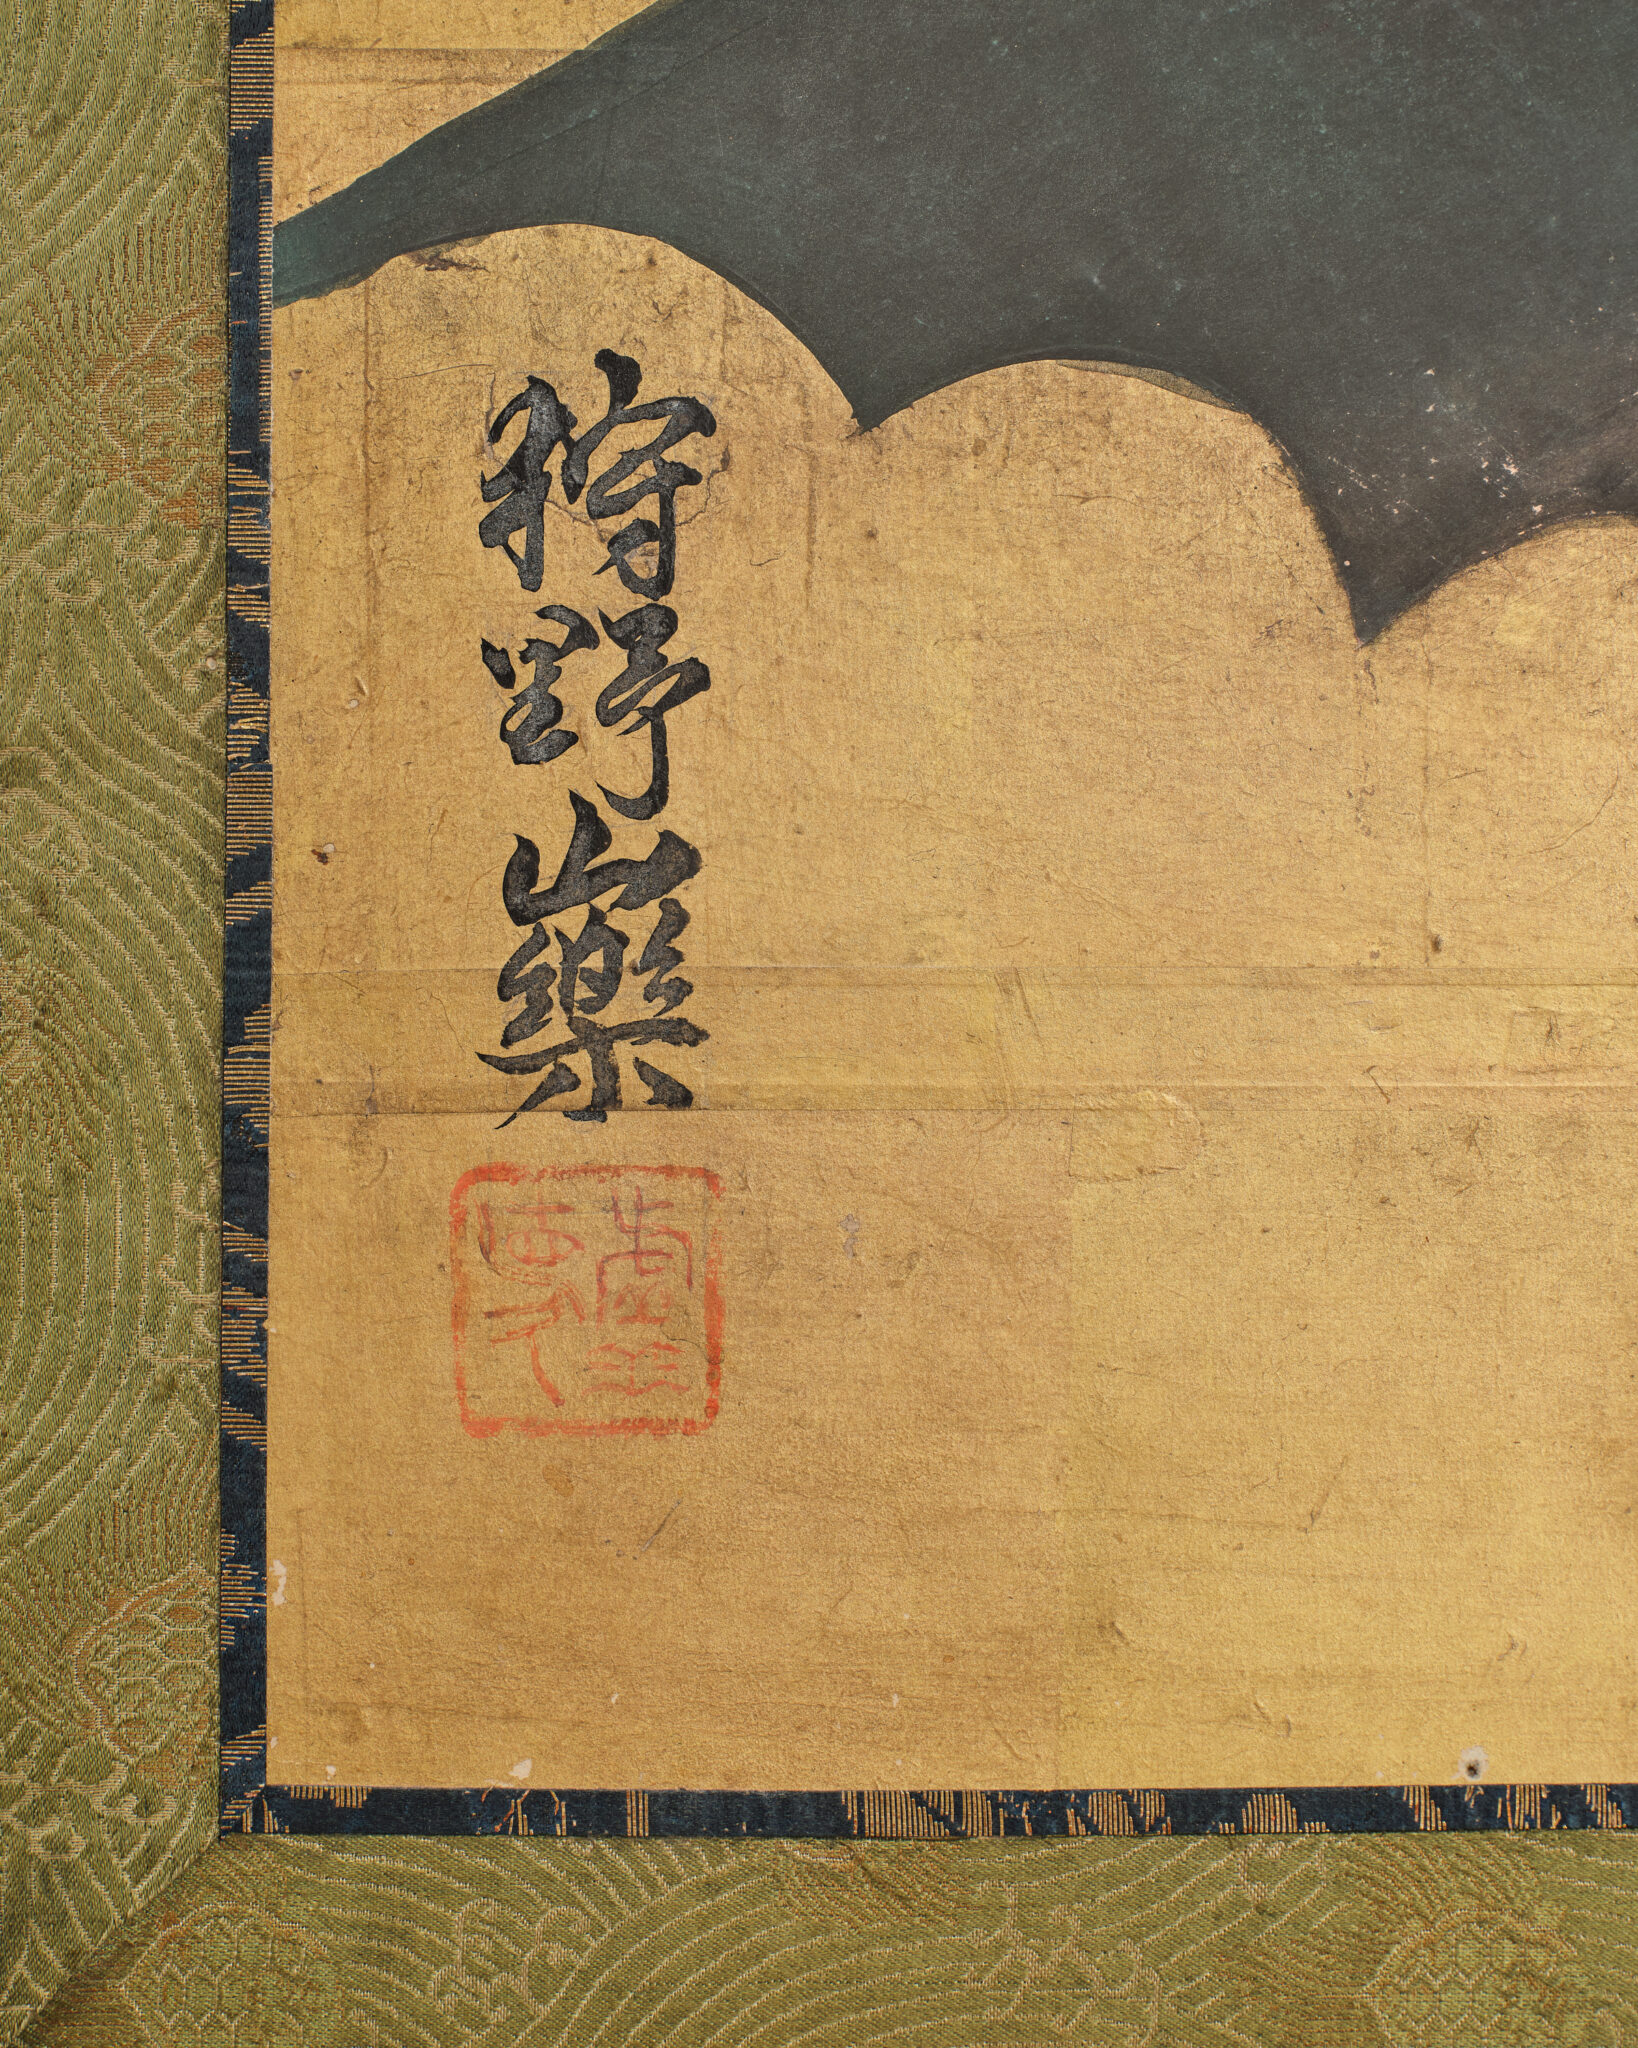 狩野山樂